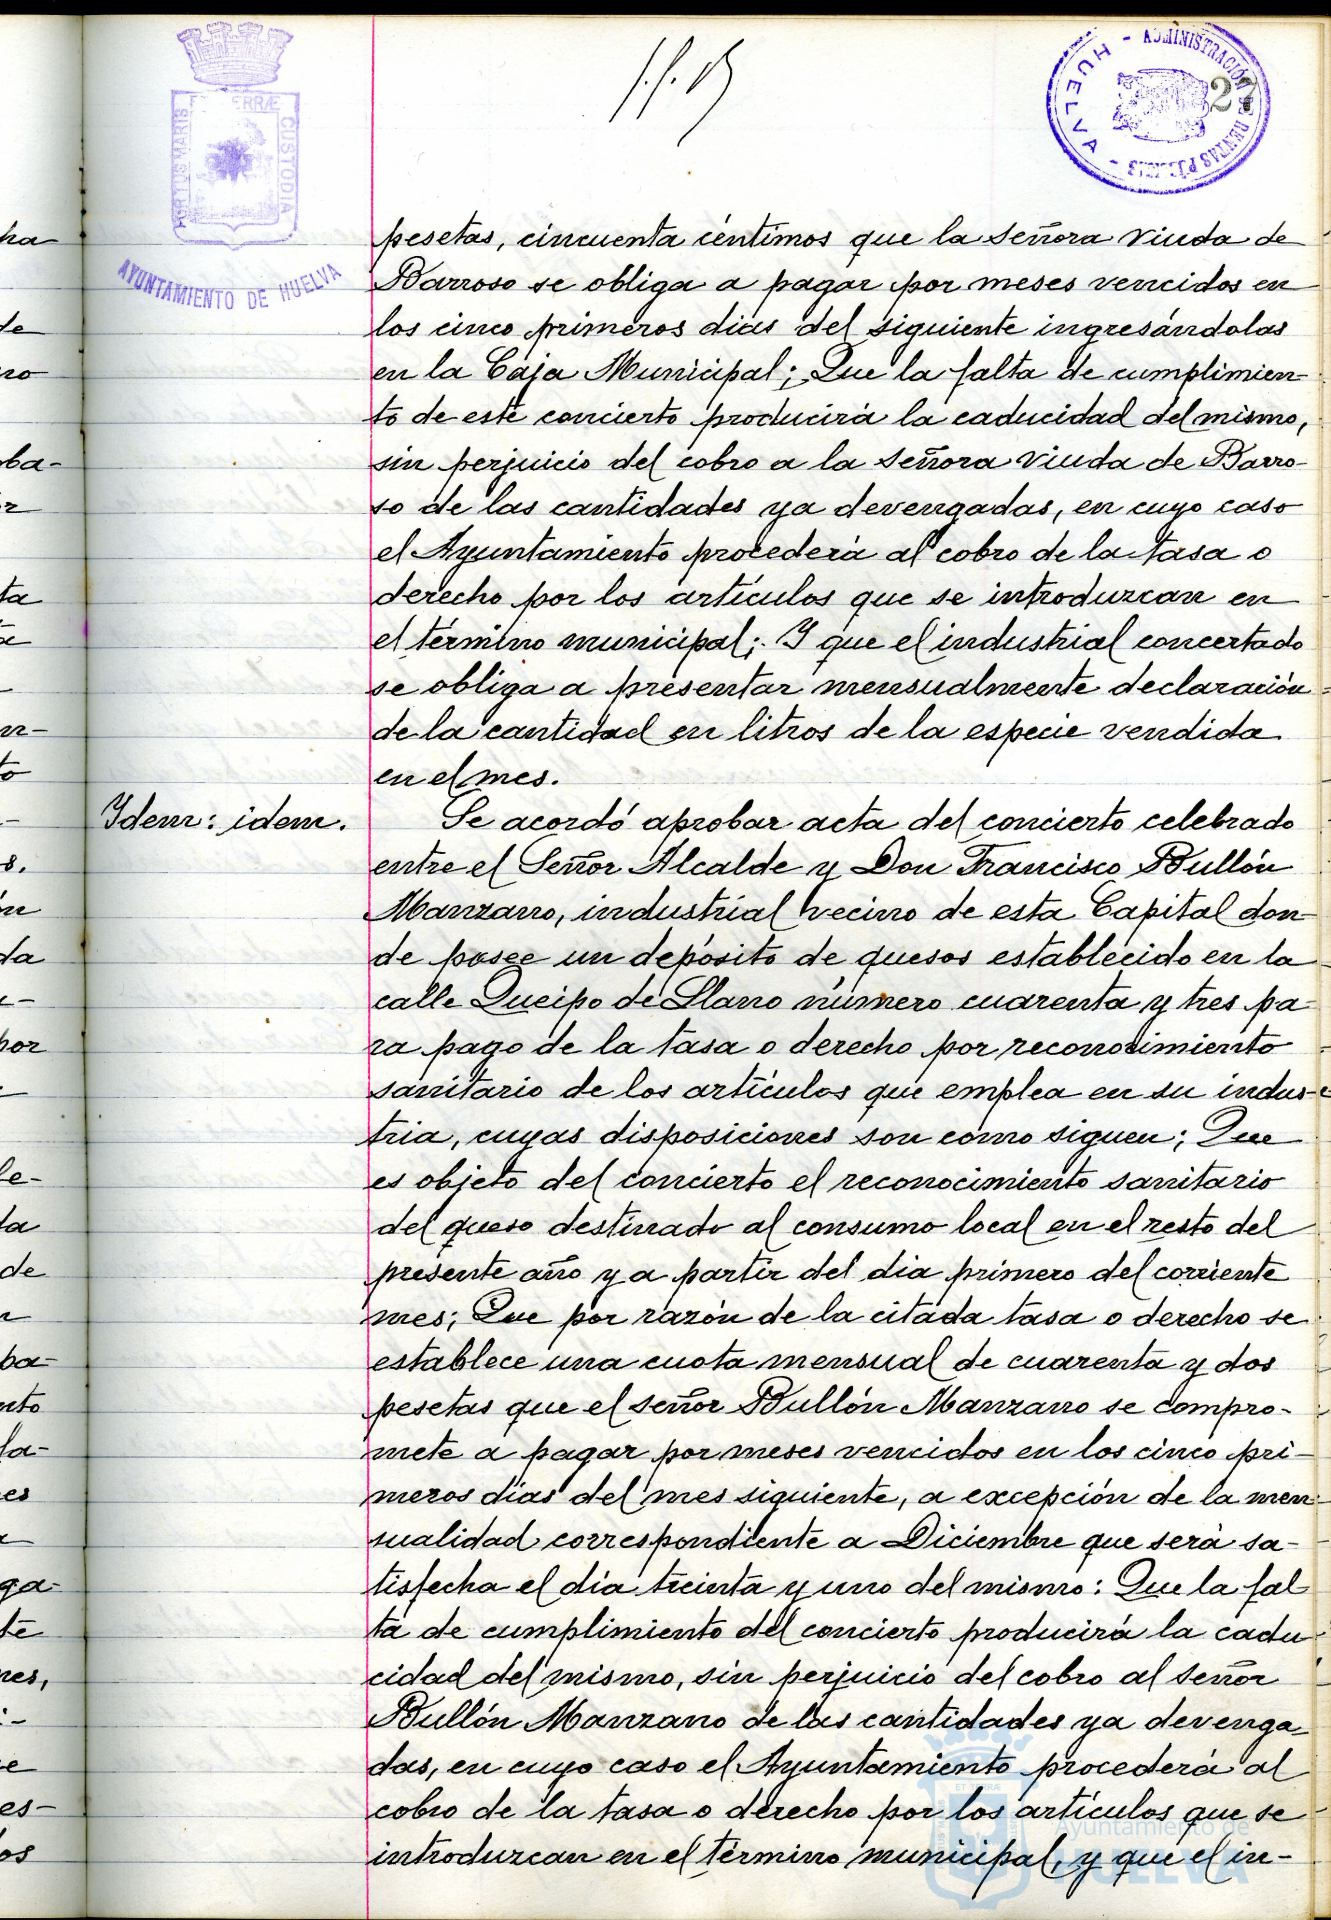 PORTUS MARIS ET TERRÆ CUSTODIA
AYUNTAMIENTO DE HUELVA
ADMINISTRACIÓN DE RENTAS PÚBLICAS - HUELVA -
27
pesetas, cincuenta céntimos que la señora viuda de
Barroso se obliga a pagar por meses vencidos en
los cinco primeros dias del siguiente ingresándolas
en la Caja Municipal; Que la falta de cumplimien-
to de este concierto producirá la caducidad del mismo,
sin perjuicio del cobro a la señora viuda de Barro-
so de las cantidades ya devengadas, en cuyo caso
el Ayuntamiento procederá al cobro de la tasa o
derecho por los artículos que se introduzcan en
el término municipal; Y que el industrial concertado
se obliga a presentar mensualmente declaración
de la cantidad en litros de la especie vendida
en el mes.
Idem: idem.
Se acordó aprobar acta del concierto celebrado
entre el Señor Alcalde y Don Francisco Bullón
Manzano, industrial vecino de esta Capital don-
de posee un depósito de quesos establecido en la
calle Queipo de Llano número cuarenta y tres pa-
ra pago de la tasa o derecho por reconocimiento
sanitario de los artículos que emplea en su indus-
tria, cuyas disposiciones son como siguen; Que
es objeto del concierto el reconocimiento sanitario
del queso destinado al consumo local en el resto del
presente año y a partir del dia primero del corriente
mes; Que por razón de la citada tasa o derecho se
establece una cuota mensual de cuarenta y dos
pesetas que el señor Bullón Manzano se compro-
mete a pagar por meses vencidos en los cinco pri-
meros dias del mes siguiente, a excepción de la men-
sualidad correspondiente a Diciembre que será sa-
tisfecha el dia treinta y uno del mismo: Que la fal
ta de cumplimiento del concierto producirá la cadu
cidad del mismo, sin perjuicio del cobro al señor
Bullón Manzano de las cantidades ya devenga-
das, en cuyo caso el Ayuntamiento procederá al
cobro de la tasa o derecho por los artículos que se
introduzcan en el término municipal, y que el in-
Ayuntamiento de
HUELVA